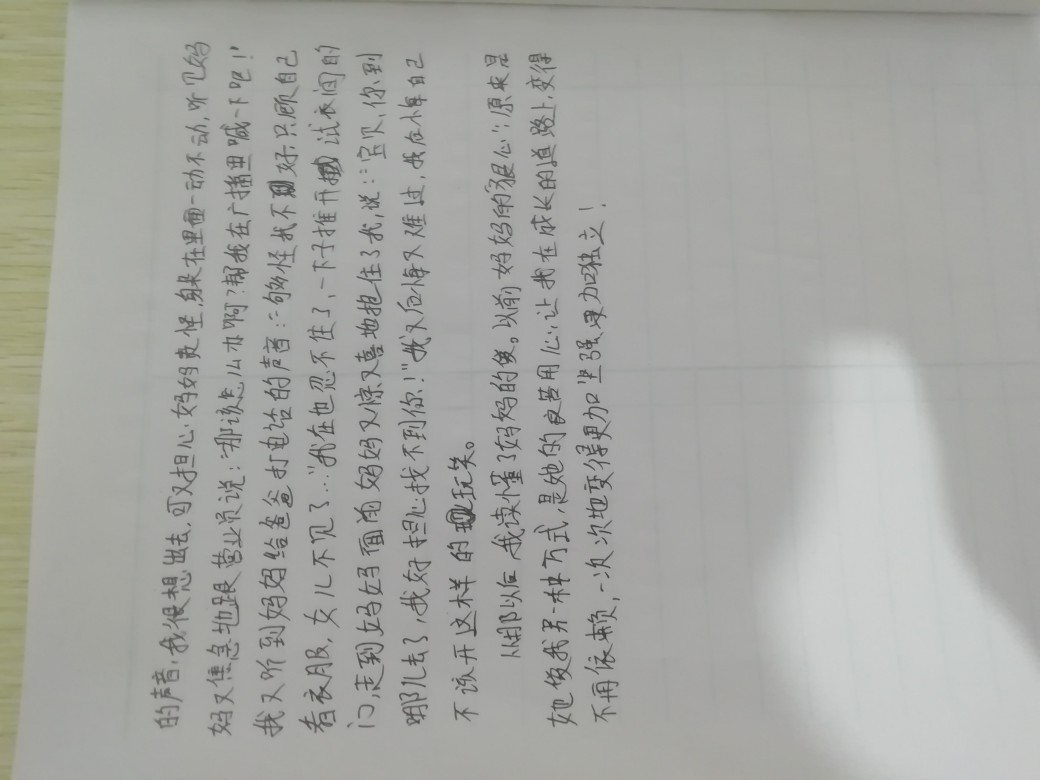 的声音，我很想出去，可又担心妈妈责怪，躲在里面一动不动，听见妈
妈又焦急地跟营业员说：“那该怎么办啊？帮我在广播里喊一下吧！”
我又听到妈妈给爸爸打电话的声音：“都怪我不好，只顾自己
看衣服，女儿不见了…”我在也忍不住了，一下子推开试衣间的
门，走到妈妈面前妈妈又惊又喜地抱住了我，说：“宝贝，你到
哪儿去了，我好担心找不到你！”我又后悔又难过，我后悔自己
不该开这样的玩笑。
从那以后，我读懂了妈妈的爱。以前妈妈的“狠心”原来是
她爱我另一种方式，是她的良苦用心，让我在成长的道路上，变得
不用依赖，一次次地变得更加坚强更加独立！